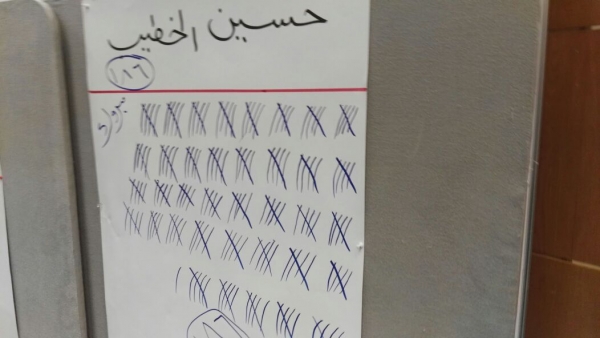 حسين الخطيب
١٨٦